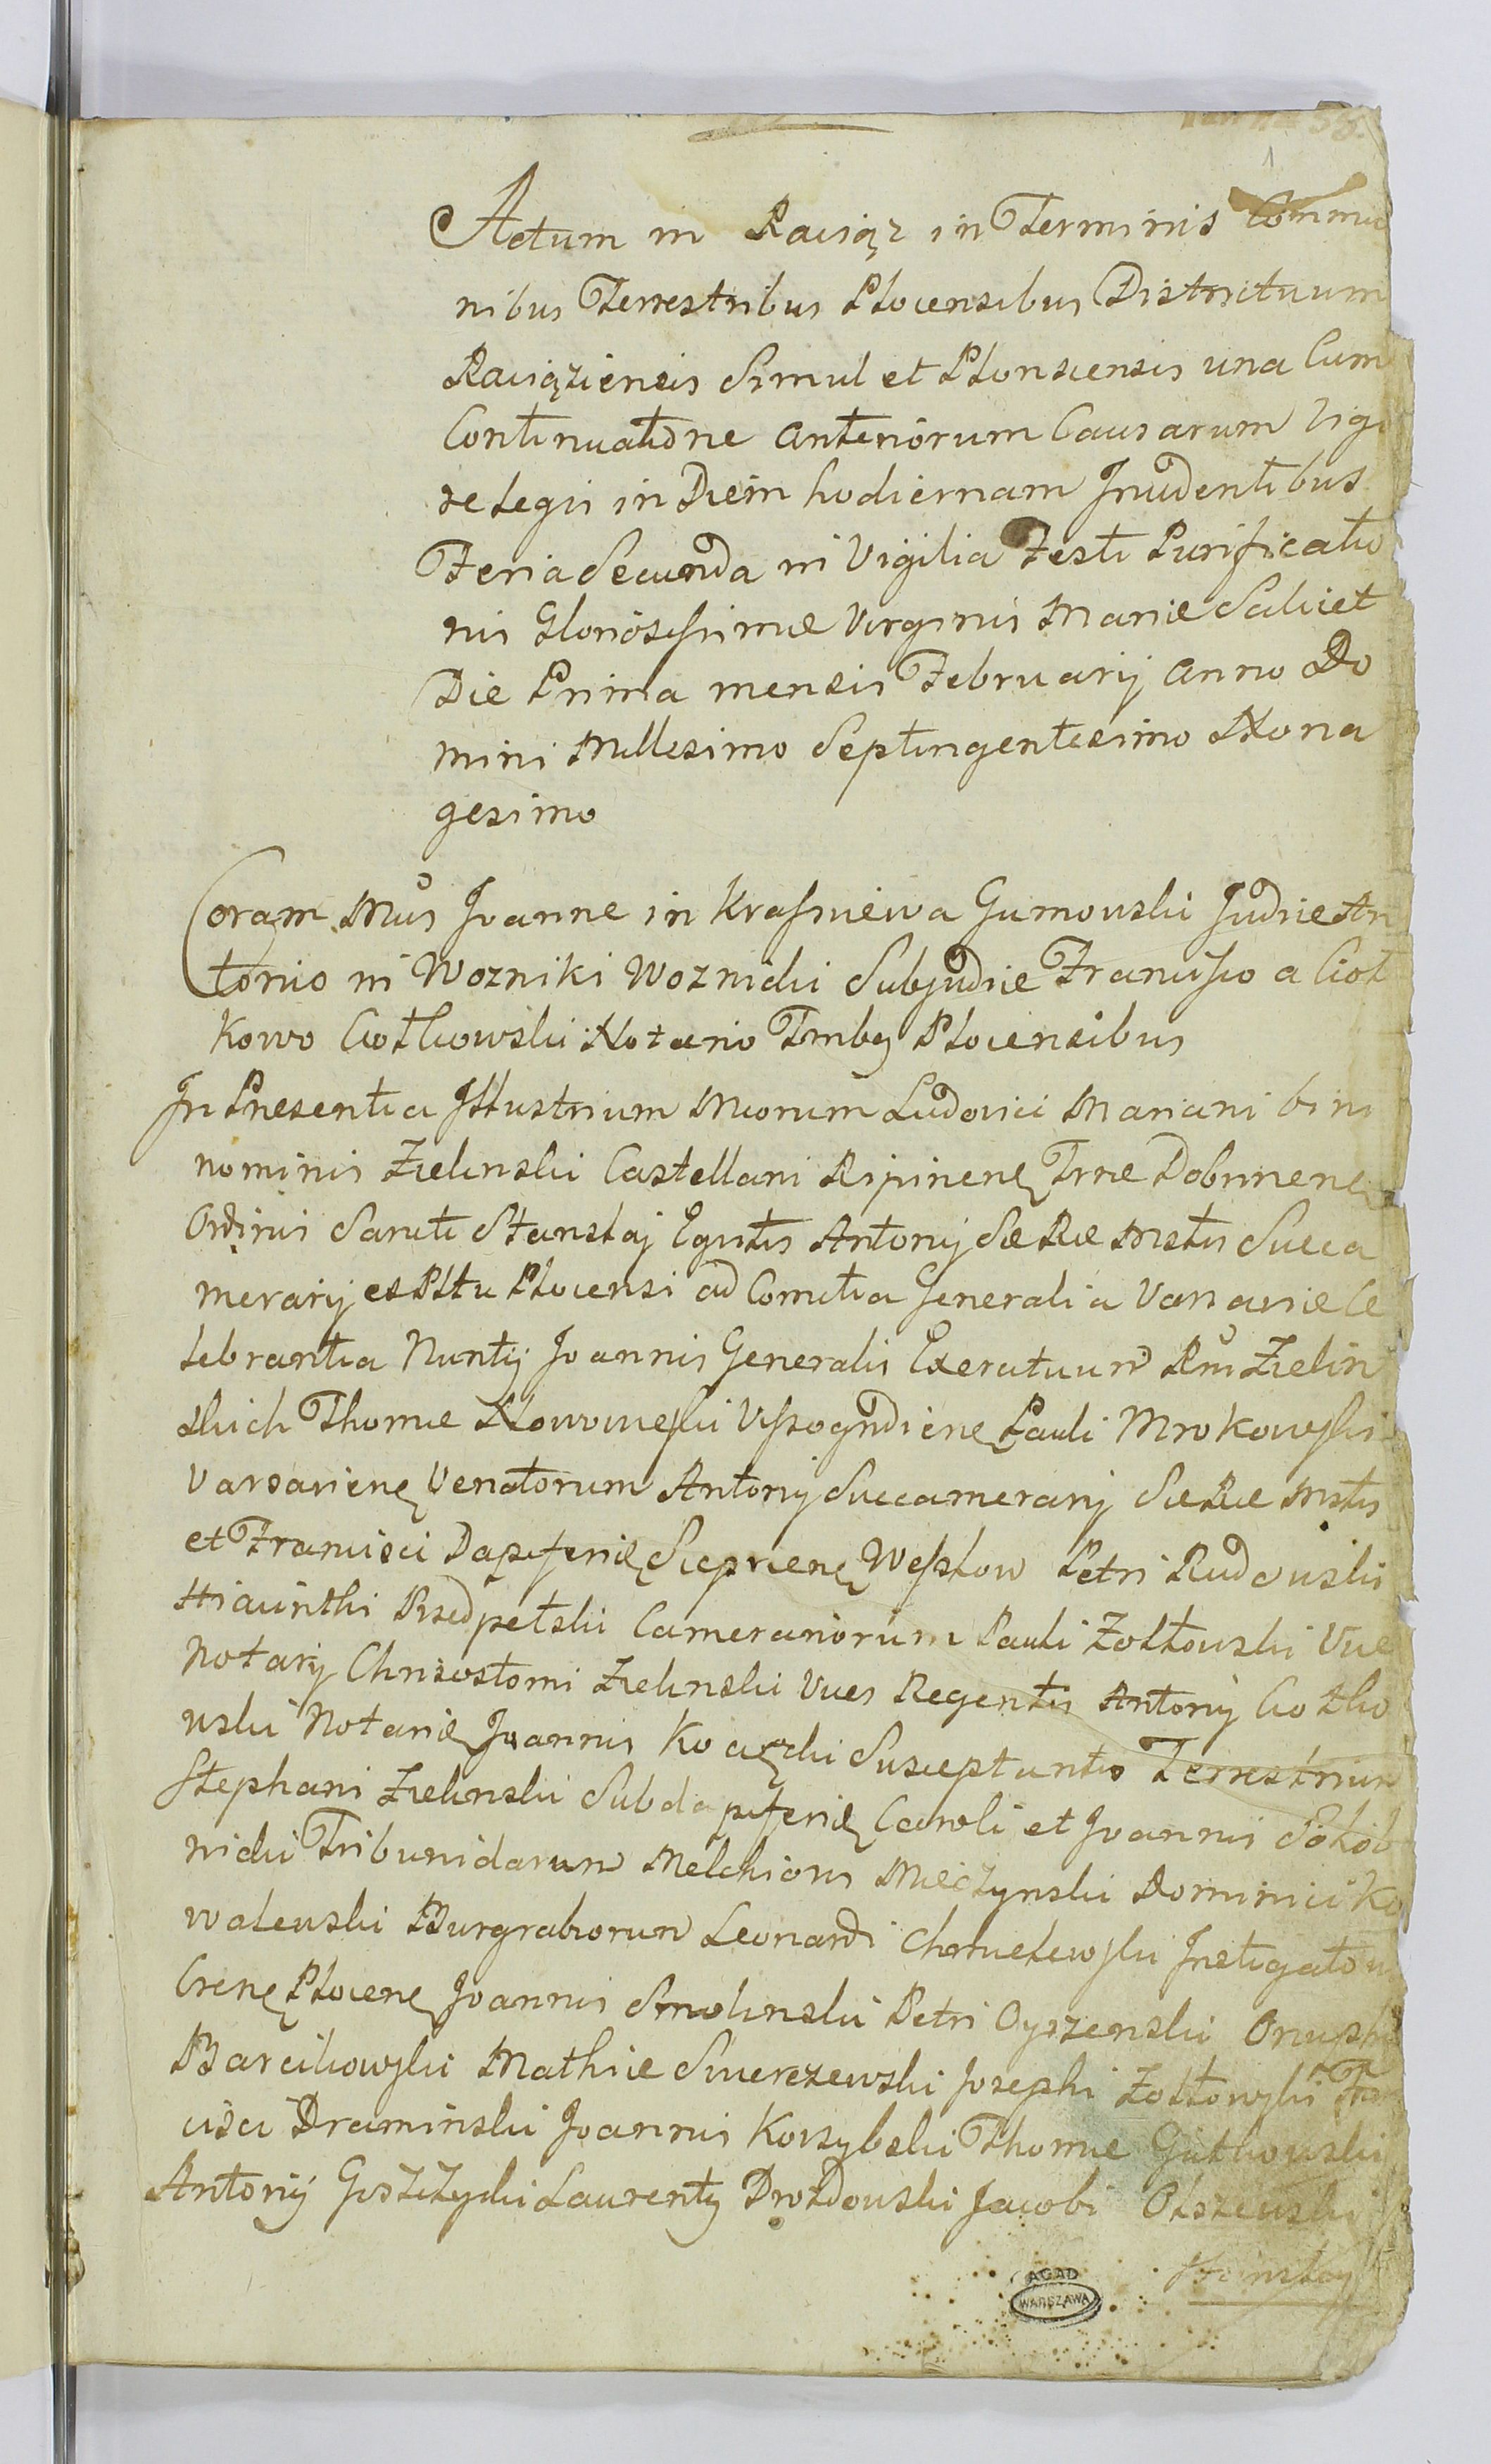 58.
1
Actum in Raciąz in Terminis Commu
nibus Terrestribus Plocensibus Districtuum
Raciąziensis Simul et Plonscensis una Cum
Continuatione anteriorum Causarum Vigo
re Legis in Diem hodiernam Incidentibus
Feria Secunda in Vigilia Festi Purificatio
nis Gloriosissimæ Virginis Mariæ Scilicet
Die Prima mensis Februarij Anno Do
mini Millesimo Septingentesimo Nona
gesimo
Coram Mcis Joanne in Krasniewa Gumowski Judice An
tonio in Wozniki Woznicki Subjudice Francisco a Ciot
kowo Ciotkowski Notario Trrbꝫ Plocensibus
In Presentia Illustrium Mcorum Ludovici Mariani bini
nominis Zielinski Castellani Ripinenę Trræ Dobrinenę
Ordinis Sancti Stanslaj Equitis Antonij SæRæ Mstis Succa
merarij et Pttu Plocensi ad Comitia Generalia Varsaviæ Ce
lebrantia Nuntij Joannis Generalis Exercituum Rni Zielin
skich Thomæ Nowowieyski Vissogrodienę Pauli Mrokowski
Varsavienę Venatorum Antonij Succamerarij SæRæ Mstis
et Francisci Dapiferidę Sieprcenę Wessłow Petri Rudowski
Hiacinthi Rzedpełski Camerariorum Pauli Zołtowski Vice
Notarij Chrisostomi Zielinski Vices Regentis Antonij Ciotko
wski Notaridę Joannis Ko Susceptantis Terrestrium
Stephani Zielinski Subdapiferidę Caroli et Joannis Sokol
nicki Tribunidarum Melchioris Mieczynski Dominici Ko
walewski Burgrabiorum Leonardi Chmielewski Instigatoris
Crenę Plocenę Joannis Smolinski Petri Oyrzenski Onuphri
Barcikowski Mathiæ Swierczewski Josephi Zołtowski Fran
cisci Draminski Joannis Korzybski Thomæ Gutkowski
Antonij Gosczycki Laurentij Drozdowski Jacobi Olszewski
AGAD
WARSZAWA